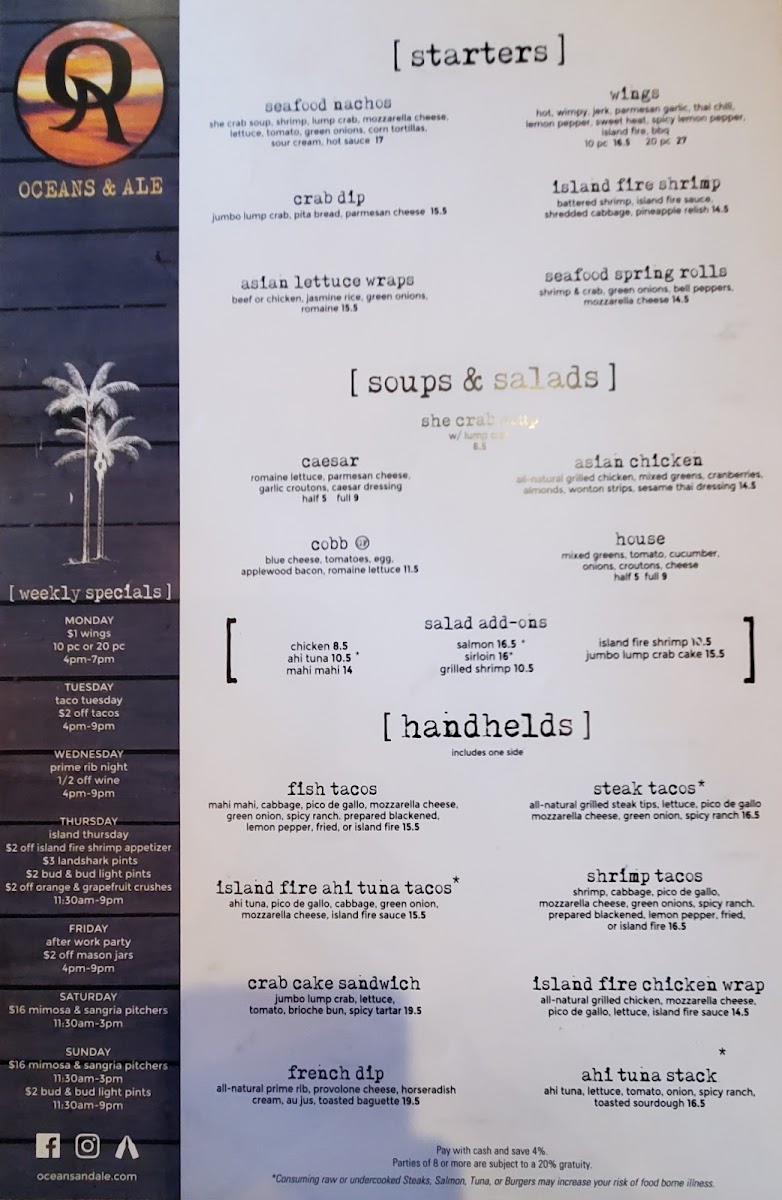 OCEANS & ALE
[ weekly specials ]
MONDAY
$1 wings
10 pc or 20 pc
4pm-7pm
TUESDAY
taco tuesday
$2 off tacos
4pm-9pm
WEDNESDAY
prime rib night
1/2 off wine
4pm-9pm
THURSDAY
island thursday
$2 off island fire shrimp appetizer
$3 landshark pints
$2 bud & bud light pints
$2 off orange & grapefruit crushes
11:30am-9pm
FRIDAY
after work party
$2 off mason jars
4pm-9pm
SATURDAY
$16 mimosa & sangria pitchers
11:30am-3pm
SUNDAY
$16 mimosa & sangria pitchers
11:30am-3pm
$2 bud & bud light pints
11:30am-9pm
oceansandale.com
[ starters ]
seafood nachos
she crab soup, shrimp, lump crab, mozzarella cheese,
lettuce, tomato, green onions, corn tortillas,
sour cream, hot sauce 17
wings
hot, wimpy, jerk, parmesan garlic, thai chili,
lemon pepper, sweet heat, spicy lemon pepper,
island fire, bbq
10 pc 16.5 20 pc 27
crab dip
jumbo lump crab, pita bread, parmesan cheese 15.5
island fire shrimp
battered shrimp, island fire sauce,
shredded cabbage, pineapple relish 14.5
asian lettuce wraps
beef or chicken, jasmine rice, green onions,
romaine 15.5
seafood spring rolls
shrimp & crab, green onions, bell peppers,
mozzarella cheese 14.5
[ soups & salads ]
she crab soup
w/ lump crab
8.5
caesar
romaine lettuce, parmesan cheese,
garlic croutons, caesar dressing
half 5 full 9
asian chicken
all-natural grilled chicken, mixed greens, cranberries,
almonds, wonton strips, sesame thai dressing 14.5
cobb
blue cheese, tomatoes, egg,
applewood bacon, romaine lettuce 11.5
house
mixed greens, tomato, cucumber,
onions, croutons, cheese
half 5 full 9
salad add-ons
chicken 8.5
ahi tuna 10.5 *
mahi mahi 14
salmon 16.5 *
sirloin 16*
grilled shrimp 10.5
island fire shrimp 10.5
jumbo lump crab cake 15.5
[ handhelds ]
includes one side
fish tacos
mahi mahi, cabbage, pico de gallo, mozzarella cheese,
green onion, spicy ranch. prepared blackened,
lemon pepper, fried, or island fire 15.5
steak tacos*
all-natural grilled steak tips, lettuce, pico de gallo
mozzarella cheese, green onion, spicy ranch 16.5
island fire ahi tuna tacos*
ahi tuna, pico de gallo, cabbage, green onion,
mozzarella cheese, island fire sauce 15.5
shrimp tacos
shrimp, cabbage, pico de gallo,
mozzarella cheese, green onions, spicy ranch.
prepared blackened, lemon pepper, fried,
or island fire 16.5
crab cake sandwich
jumbo lump crab, lettuce,
tomato, brioche bun, spicy tartar 19.5
island fire chicken wrap
all-natural grilled chicken, mozzarella cheese,
pico de gallo, lettuce, island fire sauce 14.5
french dip
all-natural prime rib, provolone cheese, horseradish
cream, au jus, toasted baguette 19.5
*
ahi tuna stack
ahi tuna, lettuce, tomato, onion, spicy ranch,
toasted sourdough 16.5
Pay with cash and save 4%.
Parties of 8 or more are subject to a 20% gratuity.
*Consuming raw or undercooked Steaks, Salmon, Tuna, or Burgers may increase your risk of food borne illness.